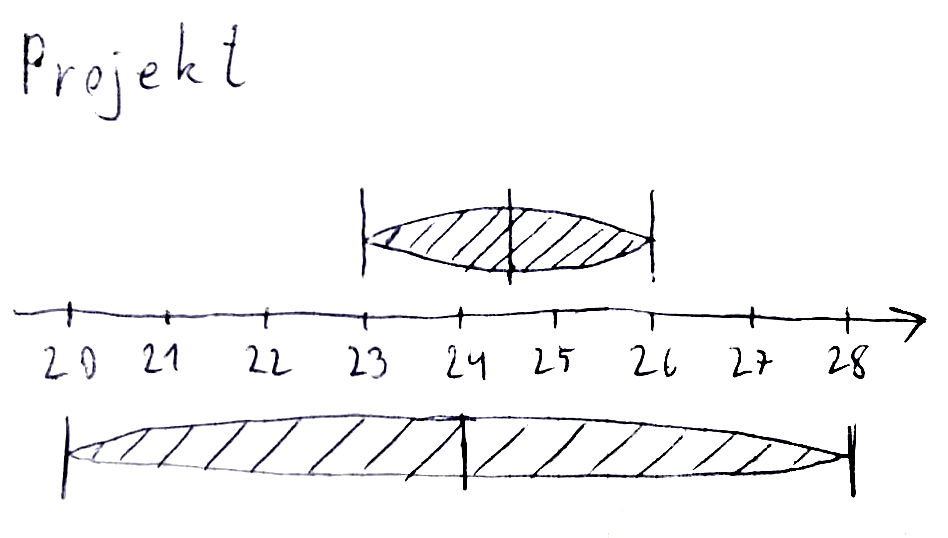 Projekt
20 21 22 23 24 25 26 27 28